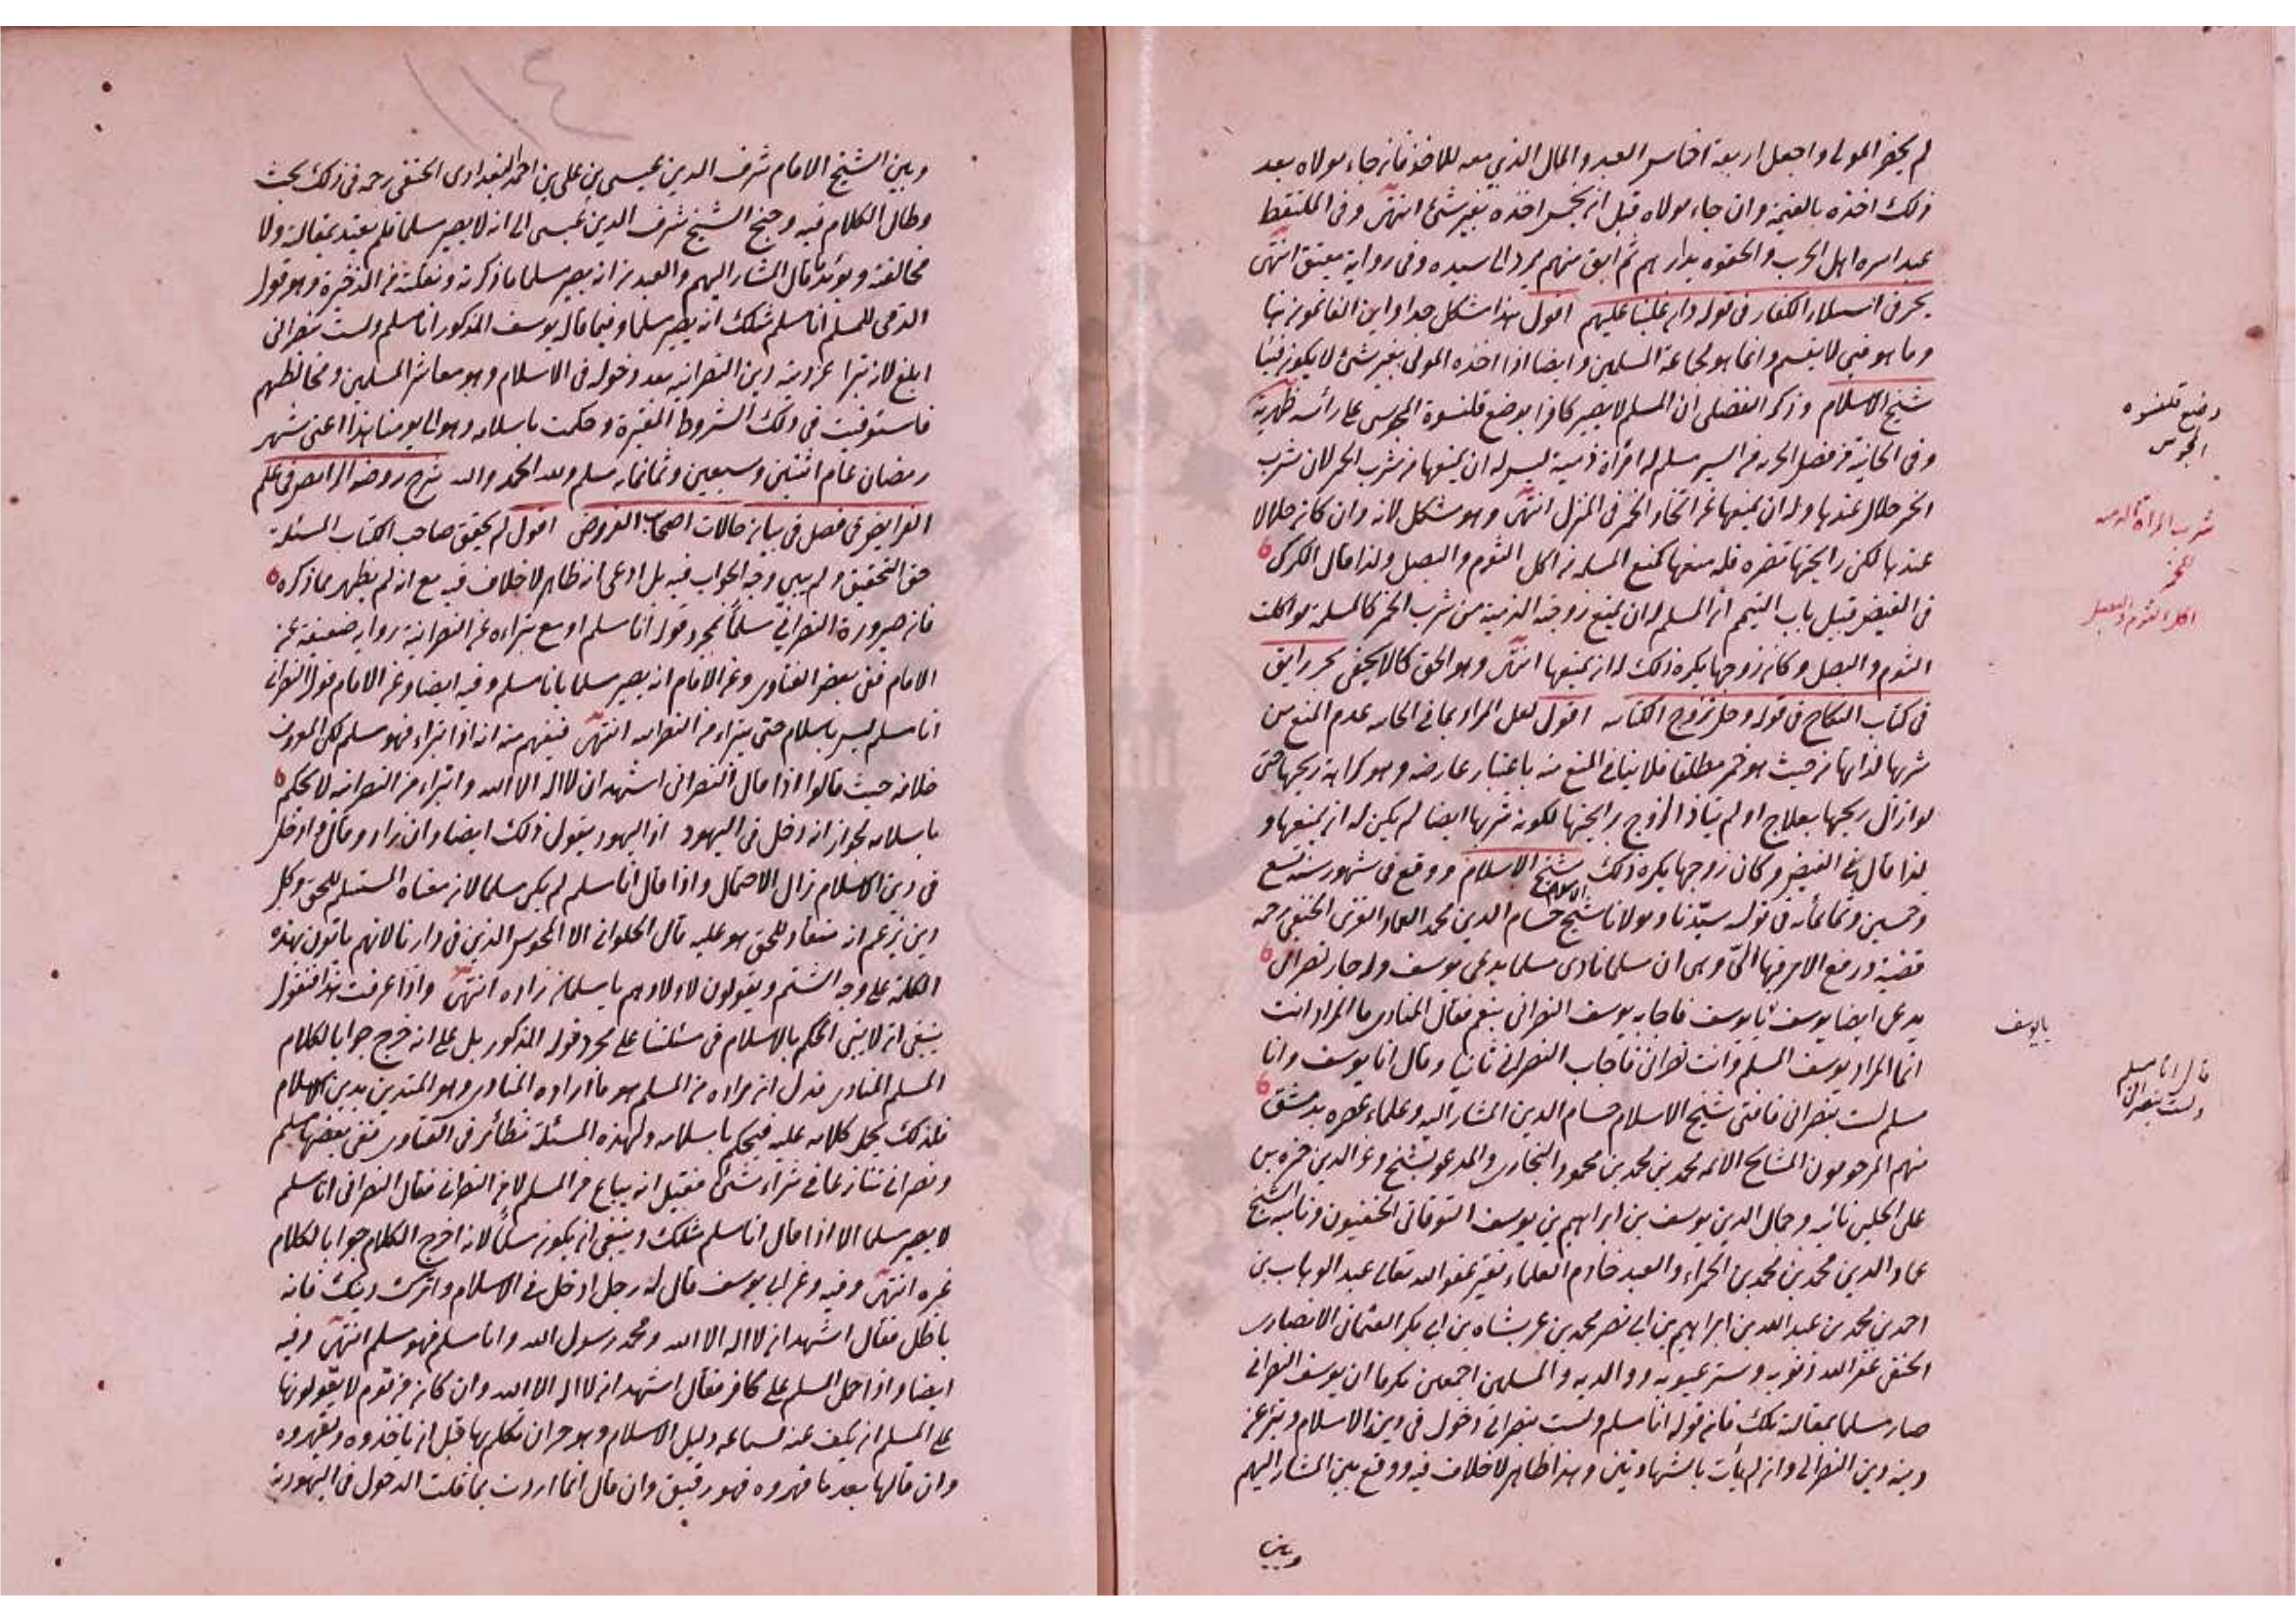 لم يحضر المولى واجعل اربعة اخماس العبد والمال الذي معه للآخذ فان جاء مولاه بعد
ذلك اخذه بالقيمة وان جاء مولاه قبل ان يخمس اخذه بغير شئ انتهى وفى الملتقط
عبد اسره اهل الحرب والحقوه بدارهم ثم ابق منهم يرد الى سيده وفى رواية يعتق انتهى
بحر فى استيلاء الكفار فى قوله وان غلبنا عليهم اقول هذا مشكل جدا واين الغانمون
وما هو فئ لا يقسم وانما هو لجماعة المسلمين وايضا اذا اخذه المولى بغير شئ لا يكون فيئا
شيخ الاسلام وذكر الفضلى ان المسلم لا يصير كافرا بوضع قلنسوة المجوسى على رأسه ظهيرية
وفى الخانية من فصل الجزية من السير مسلم له امرأة ذمية ليس له ان يمنعها من شرب الخمر لان شرب
الخمر حلال عندها وله ان يمنعها عن اتخاذ الخمر فى المنزل انتهى وهو مشكل لانه وان كان حلالا
عندها لكن رايحتها تضره فله منعها كمنع المسلمة من اكل الثوم والبصل ولذا قال الكركى
فى الفيض قبيل باب التيمم ان المسلم له ان يمنع زوجته الذمية من شرب الخمر كالمسلمة لو اكلت
الثوم والبصل وكان زوجها يكره ذلك له ان يمنعها انتهى وهو الحق كما لا يخفى بحر رايق
فى كتاب النكاح فى قوله وحل تزوج الكتابية اقول لعل المراد بما فى الخانية عدم المنع من
شربها لذاتها من حيث هو خمر مطلقا فلا ينافى المنع منه باعتبار عارضه وهو كراهة ريحها حتى
لو ازال ريحها بعلاج او لم يتأذ الزوج برايحتها لكونه شربها ايضا لم يكن له ان يمنعها و
لذا قال فى الفيض وكان زوجها يكره ذلك شيخ الاسلام ووقع فى شهور سنة تسع
وخمسين وثمانمأية فى توليه سيدنا ومولانا شيخ الاسلام حسام الدين محمد العماد الغزى الحنفى رحمه
قضية ورفع الامر فيها الىّ وهى ان مسلما نادى مسلما يدعى يوسف وله جار نصرانى
يدعى ايضا يوسف يا يوسف فاجابه يوسف النصرانى بنعم فقال المنادى ما المراد انت
انما المراد يوسف المسلم وانت نصرانى فاجاب النصرانى ثانيا وقال انا يوسف وانا
مسلم لست بنصرانى فافتى شيخ الاسلام حسام الدين المشار اليه وعلماء عصره بدمشق
منهم المرحومون المشايخ الائمه محمد بن محمد بن محمود البخارى والمدعو بشيخ وعز الدين حمزه بن
على الحلبى نائبه وجمال الدين يوسف بن ابراهيم بن يوسف التوقاتى الحنفيون ونائبه الشيخ
عماد الدين محمد بن محمد بن الحمراء والعبد خادم العلماء فقير عفو الله تعالى عبد الوهاب بن
احمد بن محمد بن عبد الله بن ابراهيم بن ابى نصر محمد بن عربشاه بن ابى بكر العثمانى الانصارى
الحنفى غفر الله ذنوبه وستر عيوبه ووالديه والمسلمين اجمعين بكرمه ان يوسف النصرانى
صار مسلما بمقالته تلك فان قوله انا مسلم ولست بنصرانى دخول فى دين الاسلام وتبر عن
دينه دين النصرانى وان لم يأت بالشهادتين وهذا ظاهر لا خلاف فيه ووقع بين المشار اليهم
وبين
وضع قلنسوه
المجوس
شرب المرأة الذميه
للخمر
اكل الثوم والبصل
يا يوسف
قال انا مسلم
ولست بنصرانى
١١٤
وبين الشيخ الامام شرف الدين عيسى بن على بن احمد البغدادى الحنفى رحمه فى ذلك بحث
وطال الكلام فيه وجنح الشيخ شرف الدين عيسى الى انه لا يصير مسلما فلم يعتد بمقالته ولا
مخالفته ويؤيد ما قال المشار اليهم والعبد من انه يصير مسلما ما ذكرته ونقلته من الذخيرة وهو قول
الذمى للمسلم انا مسلم مثلك انه يصير مسلما وفيما قاله يوسف المذكور انا مسلم ولست بنصرانى
ابلغ لانه تبرأ عن دينه دين النصرانيه بعد دخوله فى الاسلام وهو معاشر المسلمين ومخالطهم
فاستوفيت فى ذلك الشروط المعتبرة وحكمت باسلامه وهو الى يومنا هذا اعنى شهر
رمضان عام اثنتين وسبعين وثمانمايه مسلم ولله الحمد والمنه شرح روضة الرايض فى علم
الفرايض فى فصل فى بيان حالات اصحاب الفروض اقول لم يحقق صاحب الكتاب المسئلة
حق التحقيق ولم يبين وجه الجواب فيه بل ادعى انه ظاهر لا خلاف فيه مع انه لم يظهر بما ذكره
فان صيرورة النصرانى مسلماً بمجرد قوله انا مسلم او مع تبراءه عن النصرانية رواية ضعيفة عن
الامام ففى بعض الفتاوى وعن الامام انه يصير مسلما بانا مسلم وفيه ايضا وعن الامام قول النصرانى
انا مسلم ليس باسلام حتى يتبراء من النصرانيه انتهى فيفهم منه انه اذا تبراء فهو مسلم لكن المعروف
خلافه حيث قالوا اذا قال النصرانى اشهد ان لا اله الا الله واتبراء من النصرانيه لا يحكم
باسلامه لجواز انه دخل فى اليهود اذ اليهود يقول ذلك ايضا وان زاد وقال وادخل
فى دين الاسلام زال الاحتمال واذا قال انا مسلم لم يكن مسلما لان معناه المستسلم للحق وكل
دين يزعم انه منقاد للحق هو عليه قال الحلوانى الا المجوس الذين فى دارنا لانهم يأتون بهذه
الكلمة على وجه الشتم ويقولون لاولادهم يا مسلمان زاده انتهى واذا عرفت هذا فنقول
ينبغى ان لا يبنى الحكم بالاسلام فى مسئلتنا على مجرد قوله المذكور بل على انه خرج جوابا لكلام
المسلم المنادى فدل ان مراده من المسلم هو ما اراده المنادى وهو المتدين بدين الاسلام
فلذلك يحمل كلامه عليه فيحكم باسلامه ولهذه المسئلة نظائر فى الفتاوى ففى بعضها مسلم
ونصرانى تنازعا فى شراء شئ فقيل انه يباع من المسلم لا من النصرانى فقال النصرانى انا مسلم
لا يصير مسلما الا اذا قال انا مسلم مثلك وينبغى ان يكون مسلماً لانه اخرج الكلام جوابا لكلام
غيره انتهى وفيه وعن ابى يوسف قال له رجل ادخل فى الاسلام واترك دينك فانه
باطل فقال اشهد ان لا اله الا الله ومحمد رسول الله وانا مسلم فهو مسلم انتهى وفيه
ايضا واذا حمل المسلم على كافر فقال اشهد ان لا اله الا الله وان كان من قوم لا يقولونها
على المسلم ان يكف عنه لسماعه دليل الاسلام وهو حر ان تكلم بها قبل ان يأخذوه ويقهروه
وان قالها بعد ما قهروه فهو رقيق وان قال انما اردت بما قلت الدخول فى اليهودية